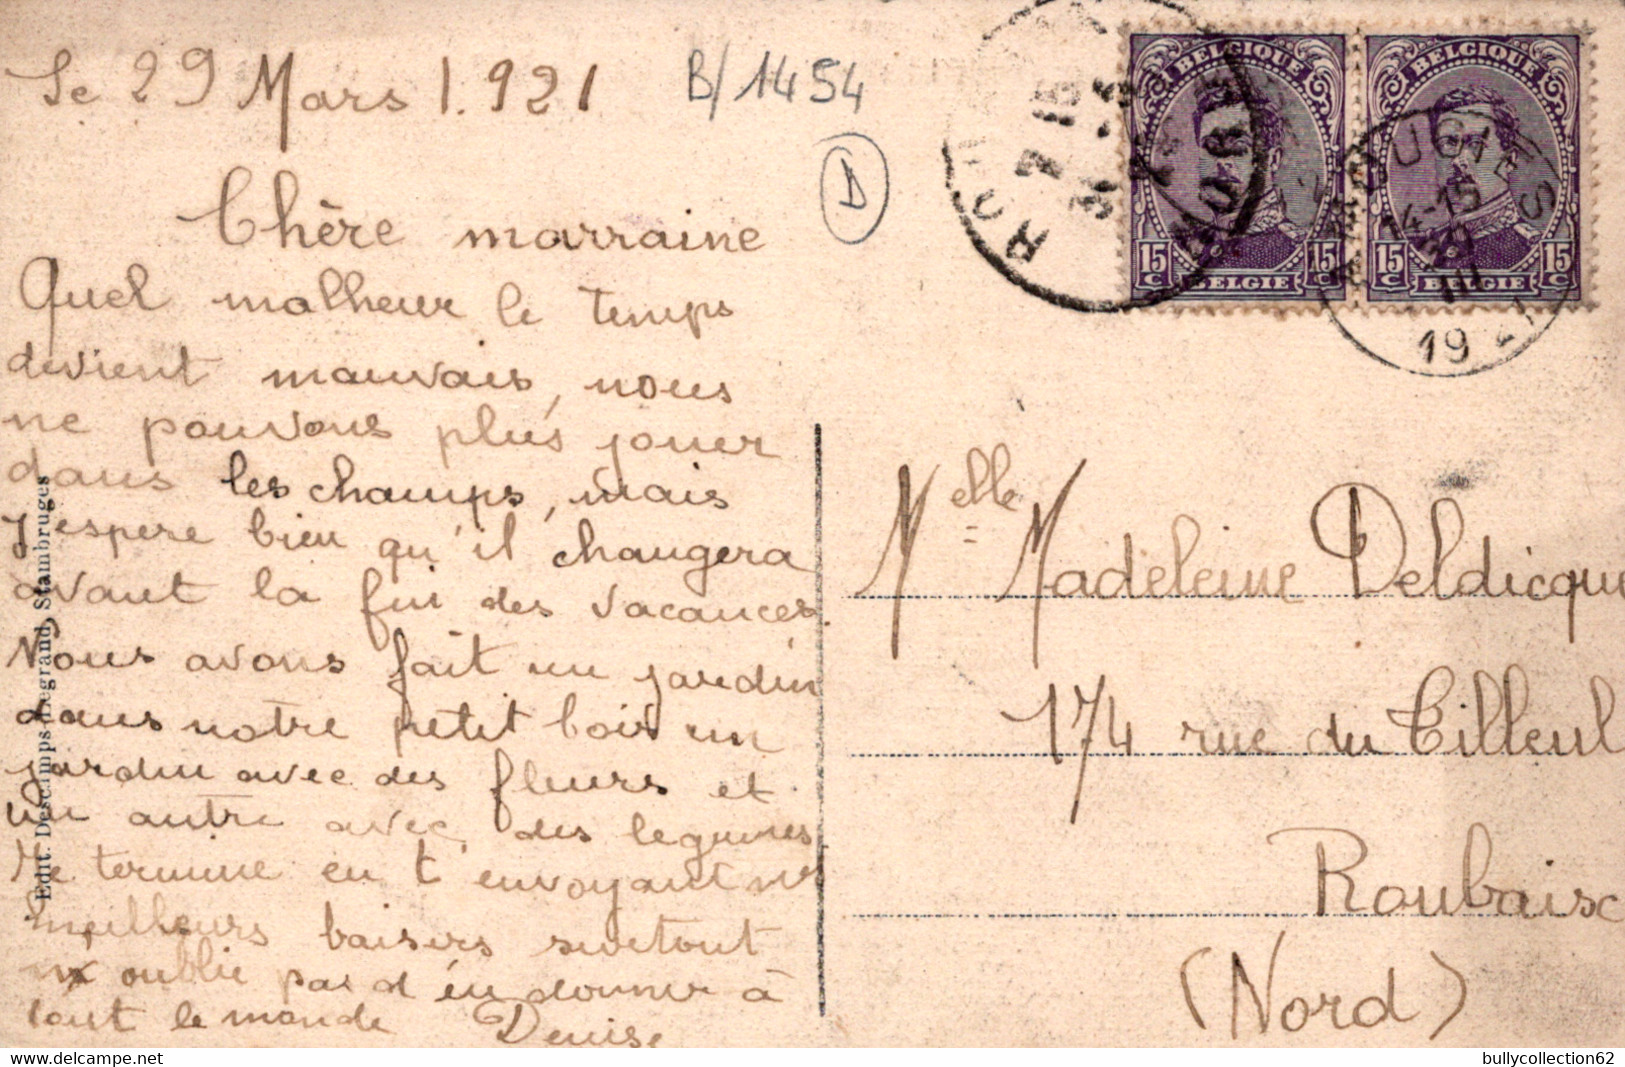 Le 29 Mars 1.921
B/1454
D
Chère marraine
Quel malheur le temps
devient mauvais, nous
ne pouvons plus jouer
dans les champs, mais
J'espere bien qu'il changera
avant la fin des vacances.
Nous avons fait un jardin
dans notre petit bois un
jardin avec des fleurs et
un autre avec des legumes
Je termine en t'envoyant mes
meilleurs baisers surtout
n'oublie pas d'en donner à
tout le monde Denise
Edit. Descamps-Legrand, Stambruges
BELGIQUE
15 C 15 C
BELGIE
BELGIQUE
15 C 15 C
BELGIE
ROU
7 15
NORD
14-15
19 21
Melle Madeleine Deldicque
174 rue du Tilleul
Roubaix
(Nord)
bullycollection62